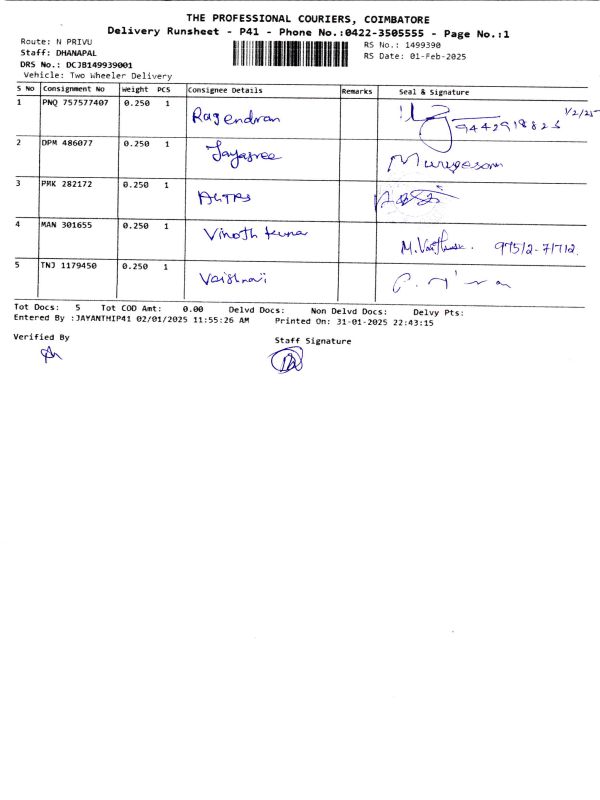 THE PROFESSIONAL COURIERS, COIMBATORE
Delivery Runsheet - P41 - Phone No.:0422-3505555 - Page No.:1
Route: N PRIVU
RS No.: 1499390
Staff: DHANAPAL
RS Date: 01-Feb-2025
DRS No.: DCJB149939001
Vehicle: Two Wheeler Delivery
S No Consignment No Weight PCS Consignee Details Remarks Seal & Signature
1 PNQ 757577407 0.250 1 Ragendran 9442918823 1/2/25
2 DPM 486077 0.250 1 Jayasree Murugesan
3 PMK 282172 0.250 1
4 MAN 301655 0.250 1 Vinoth kumar
5 TNJ 1179450 0.250 1 Vaishnavi
Tot Docs: 5 Tot COD Amt: 0.00 Delvd Docs: Non Delvd Docs: Delvy Pts:
Entered By :JAYANTHIP41 02/01/2025 11:55:26 AM Printed On: 31-01-2025 22:43:15
Verified By
Staff Signature